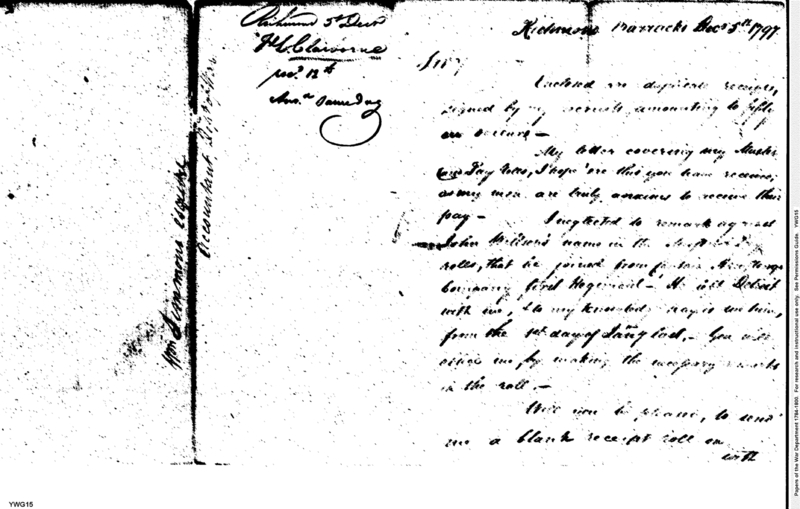 Richmond 5th Decr
F. L. Claiborne
recd 12th
Ansd same day
Wm Simmons Esquire
Accountant
Richmond Barracks Decr 5th 1797
Sir
Enclosed are duplicate receipts,
signed by my recruits amounting to fifty
My letter covering my Muster
and Pay Rolls, I hope 'ere this you have received,
as my men are truly anxious to receive their
pay —
I neglected to remark against
John Willson's name in the
rolls, that he joined from Captain
Company first Regiment — He left Detroit
with me, & to my knowledge pay is due him,
from the 1st day of Jany last, — You will
oblige me, by making the necessary remarks
in the roll. —
Will you be pleased, to send
me a blank receipt roll
with
YWG15
Papers of the War Department 1784-1800. For research and instructional use only. See Permissions Guide. YWG15